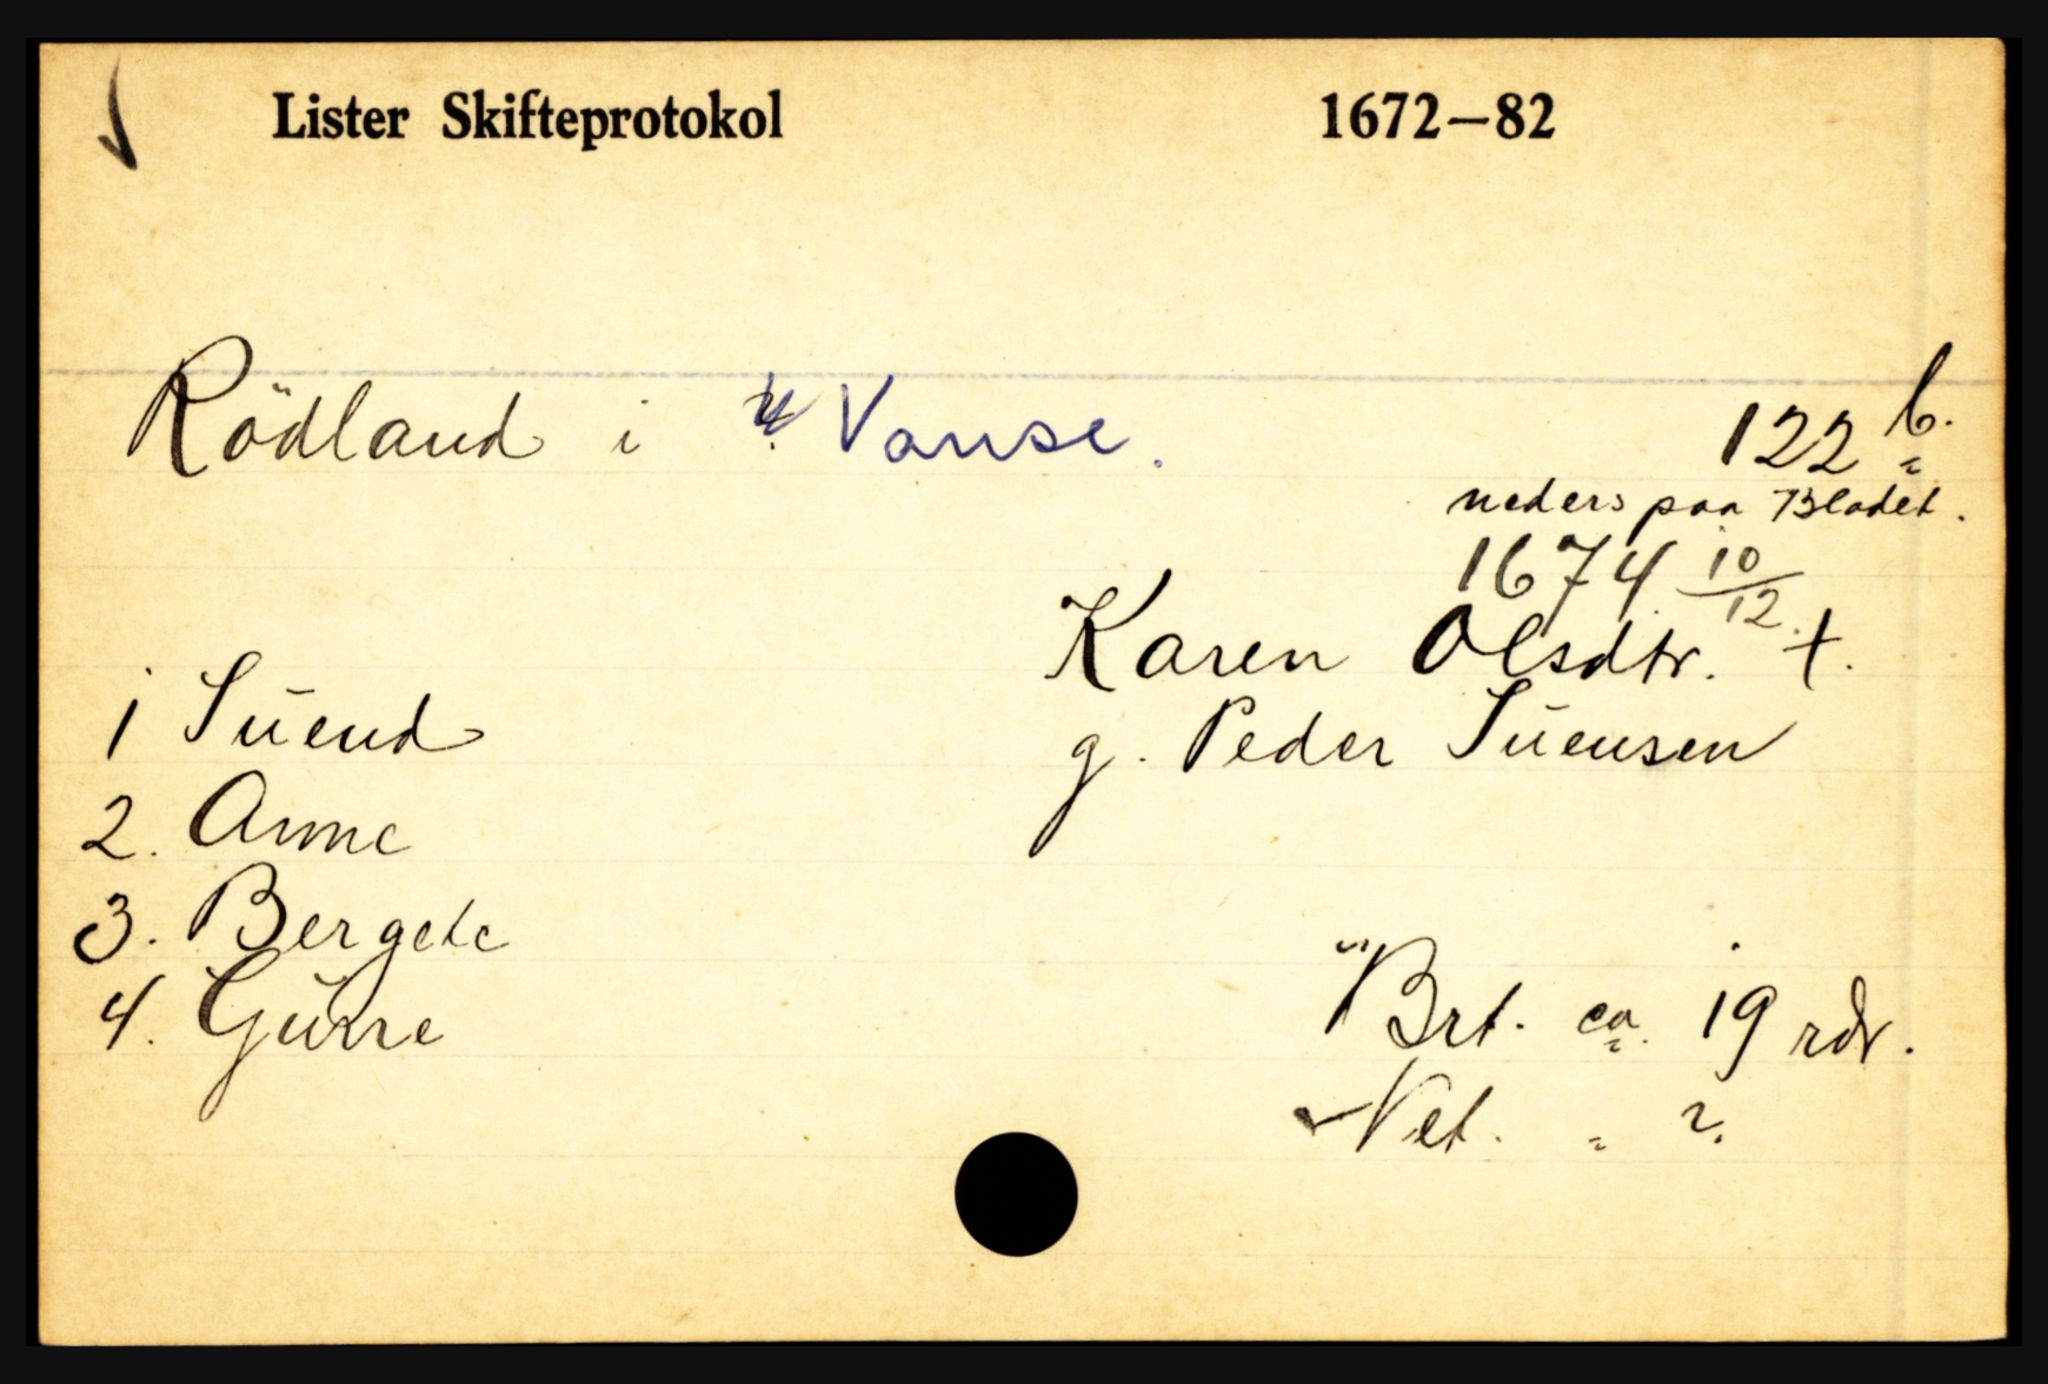 Lister Skifteprotokol 1672—82
Rödland i Vanse.
122 b.
neders paa Bladet.
1674 10/12
Karen Olsdtr. †.
g. Peder Sūensen
1 Sūend
2. Anne
3. Bergete
4. Gurre
Brt. ca. 19 rdr.
Net. " ?